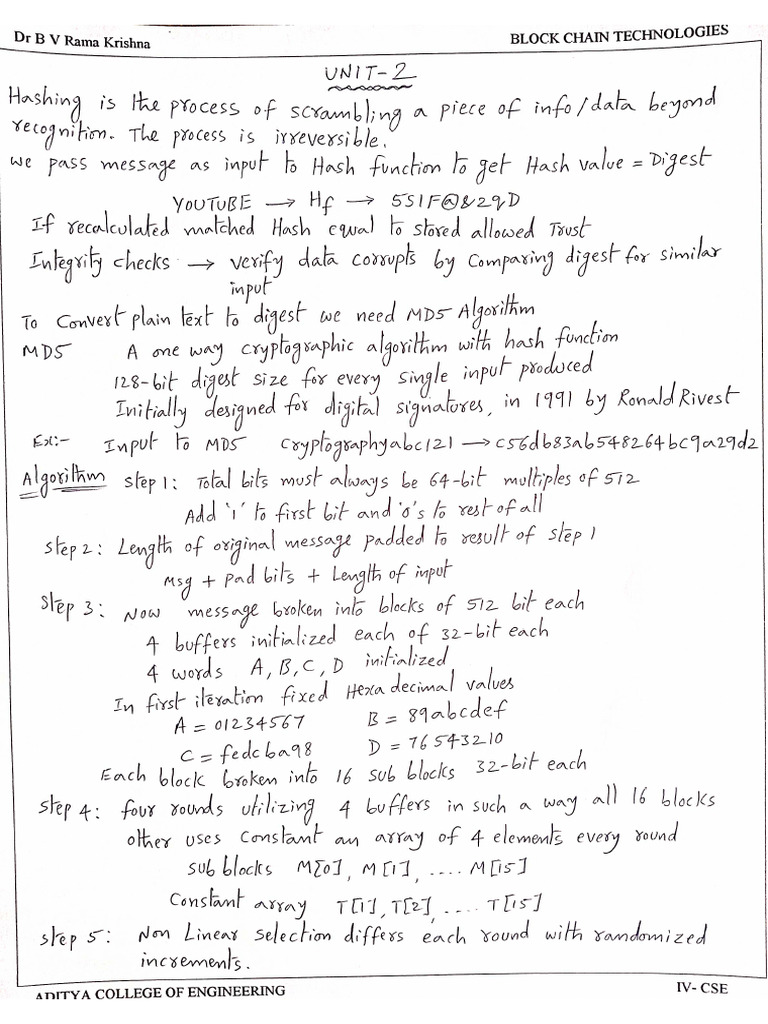 Dr B V Rama Krishna
BLOCK CHAIN TECHNOLOGIES
UNIT-2
Hashing is the process of scrambling a piece of info/data beyond
recognition. The process is irreversible.
we pass message as input to Hash function to get Hash value = Digest
YOUTUBE → Hf → 5S1F@&29D
If recalculated matched Hash equal to stored allowed Trust
Integrity checks → verify data corrupts by Comparing digest for similar
input
To Convert plain text to digest we need MD5 Algorithm
MD5 A one way cryptographic algorithm with hash function
128-bit digest size for every single input produced
Initially designed for digital signatures, in 1991 by Ronald Rivest
Ex:- Input to MD5 cryptographyabc121 → c56db83ab548264bc9a29d2
Algorithm step 1: Total bits must always be 64-bit multiples of 512
Add '1' to first bit and '0's to rest of all
step 2: Length of original message padded to result of step 1
Msg + Pad bits + Length of input
step 3: Now message broken into blocks of 512 bit each
4 buffers initialized each of 32-bit each
4 words A, B, C, D initialized
In first iteration fixed Hexa decimal values
A = 01234567 B = 89abcdef
C = fedcba98 D = 76543210
Each block broken into 16 sub blocks 32-bit each
step 4: four rounds utilizing 4 buffers in such a way all 16 blocks
other uses Constant an array of 4 elements every round
sub blocks M[0], M[1], .... M[15]
Constant array T[1], T[2], .... T[15]
step 5: Non Linear selection differs each round with randomized
increments.
ADITYA COLLEGE OF ENGINEERING
IV- CSE